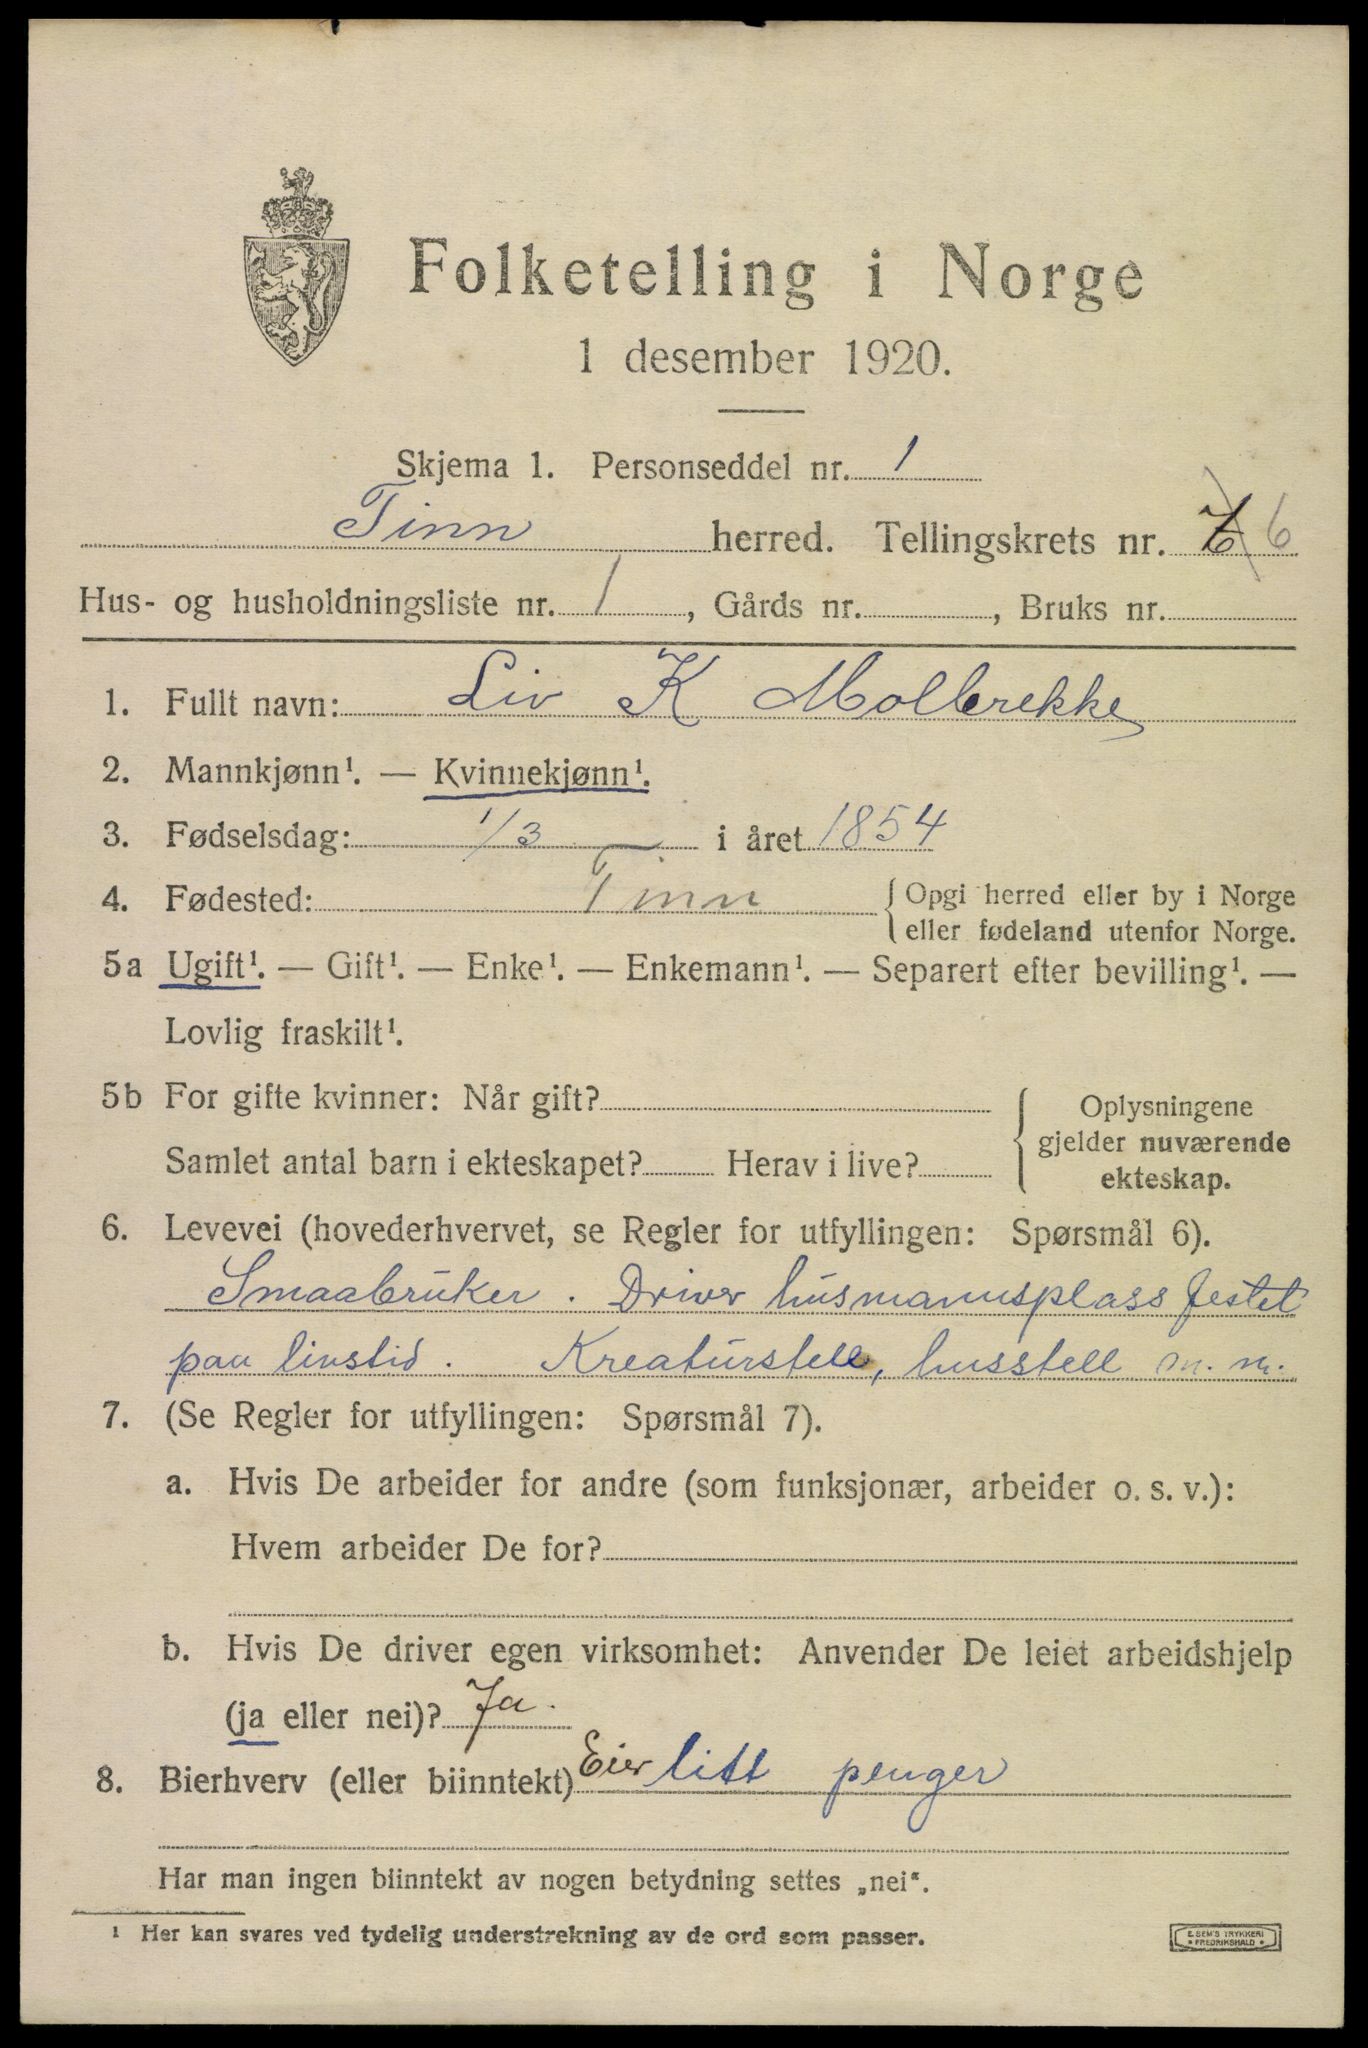 Folketelling i Norge
1 desember 1920.
Skjema 1. Personseddel nr. 1
Tinn herred. Tellingskrets nr. 6
Hus- og husholdningsliste nr. 1, Gårds nr. , Bruks nr.
1. Fullt navn: Liv K Molbrekke
2. Mannkjønn¹. — Kvinnekjønn¹.
3. Fødselsdag: 1/3 i året 1854
4. Fødested: Tinn {Opgi herred eller by i Norge
eller fødeland utenfor Norge.
5a Ugift¹. — Gift¹. — Enke¹. — Enkemann¹. — Separert efter bevilling¹. —
Lovlig fraskilt¹.
5b For gifte kvinner: Når gift?
Samlet antal barn i ekteskapet? Herav i live?
{Oplysningene
gjelder nuværende
ekteskap.
6. Levevei (hovederhvervet, se Regler for utfyllingen: Spørsmål 6).
Smaabruker. Driver husmannsplass festet
paa livstid. Kreaturstell, husstell m. m.
7. (Se Regler for utfyllingen: Spørsmål 7).
a. Hvis De arbeider for andre (som funksjonær, arbeider o. s. v.):
Hvem arbeider De for?
b. Hvis De driver egen virksomhet: Anvender De leiet arbeidshjelp
(ja eller nei)? Ja.
8. Bierhverv (eller biinntekt) Eier litt penger
Har man ingen biinntekt av nogen betydning settes „nei".
¹ Her kan svares ved tydelig understrekning av de ord som passer.
E. SEM'S TRYKKERI
FREDRIKSHALD